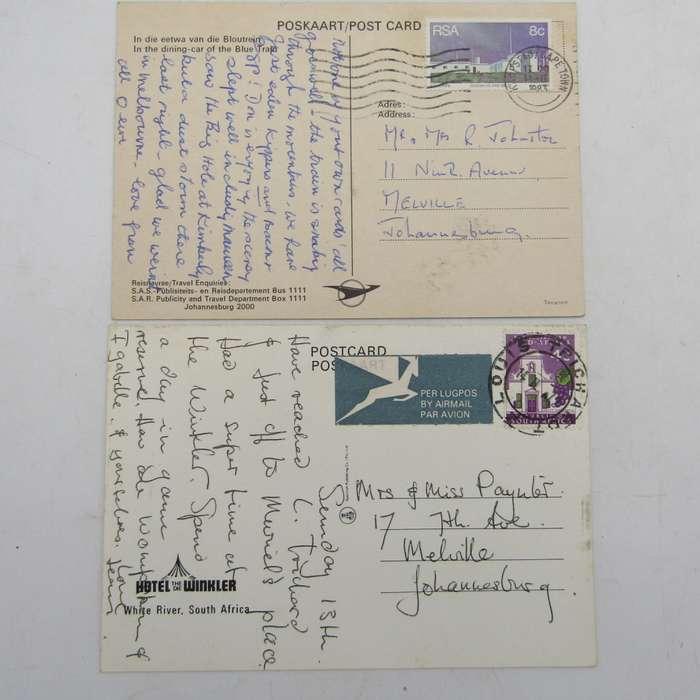 POSKAART/POST CARD
In die eetwa van die Bloutrein
In the dining-car of the Blue Train
RSA 8c
KAAPSTAD CAPE TOWN
Not one of your own cards! all
goes well - the train is snaking
through the mountains. We have
eaten kippers and bacon
Don is enjoying the scenery
slept well including
saw the Big Hole at Kimberley
but a dust storm there
last night - glad we weren't
in Melbourne - love from
all
Adres:
Address:
Mr & Mrs R. Johnston
11 Ninth Avenue
MELVILLE
Johannesburg.
Reisnavrae/Travel Enquiries:
S.A.S. Publisiteits- en Reisdepartement Bus 1111
S.A.R. Publicity and Travel Department Box 1111
Johannesburg 2000
POSTCARD
POSKAART
PER LUGPOS
BY AIRMAIL
PAR AVION
LOUIS TRICHARDT
Sunday 18th.
Have reached L. Trichard
& just off to Muriel's place.
Had a super time at
the Winkler. Spend
a day in game
reserve. How are
& yourselves. Love
Mrs & Miss Paynter.
17 7th. Ave.
Melville
Johannesburg
HOTEL THE WINKLER
White River, South Africa